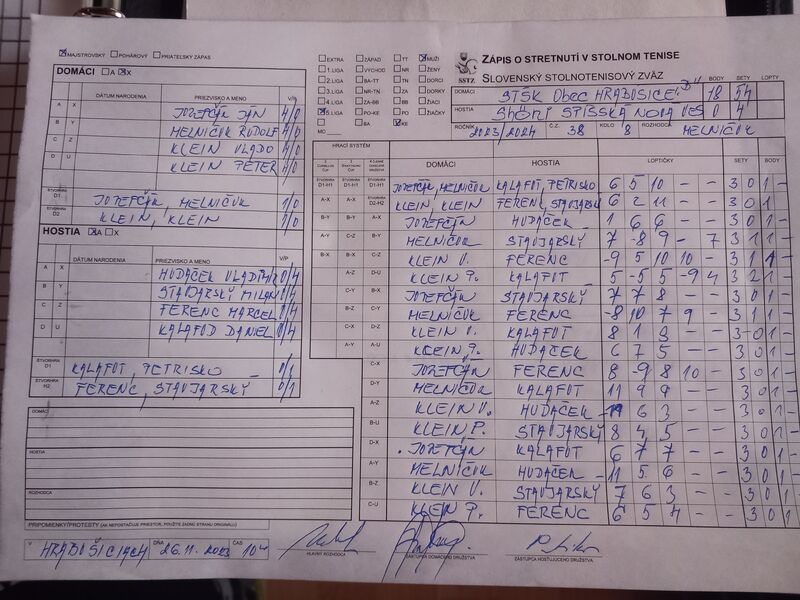 MAJSTROVSKÝ POHÁROVÝ PRIATEĽSKÝ ZÁPAS
DOMÁCI A X
DÁTUM NARODENIA PRIEZVISKO A MENO V/P
A X JOZEFČÁK JÁN 4/0
B Y MELNIČUK RUDOLF 4/0
C Z KLEIN VLADO 4/0
D U KLEIN PETER 4/0
ŠTVORHRA D1 JOZEFČÁK, MELNIČUK 1/0
ŠTVORHRA D2 KLEIN, KLEIN 1/0
HOSTIA A X
DÁTUM NARODENIA PRIEZVISKO A MENO V/P
A X HUDAČEK VLADIMÍR 0/4
B Y STAVJARSKÝ MILAN 0/4
C Z FERENC MARCEL 0/4
D U KALAFOD DANIEL 0/4
ŠTVORHRA D1 KALAFUT, PETRISKO 0/1
ŠTVORHRA H2 FERENC, STAVJARSKÝ 0/1
DOMÁCI
HOSTIA
ROZHODCA
PRIPOMIENKY/PROTESTY (AK NEPOSTAČUJE PRIESTOR, POUŽITE ZADNÚ STRANU ORIGINÁLU)
V HRABUŠICIACH DŇA 26.11.2023 ČAS 10
HLAVNÝ ROZHODCA
ZÁSTUPCA DOMÁCEHO DRUŽSTVA
ZÁSTUPCA HOSŤUJÚCEHO DRUŽSTVA
EXTRA ZÁPAD TT MUŽI
1.LIGA VÝCHOD NR ŽENY
2.LIGA BA-TT TN DORCI
3.LIGA NR-TN ZA DORKY
4.LIGA ZA-BB BB ŽIACI
5.LIGA PO-KE PO ŽIAČKY
MO BA KE
SSTZ
ZÁPIS O STRETNUTÍ V STOLNOM TENISE
SLOVENSKÝ STOLNOTENISOVÝ ZVÄZ
BODY SETY LOPTY
DOMÁCI STŠK Obec HRABUŠICE "B" 18 54
HOSTIA SPIŠSKÁ NOVÁ VES 0 4
ROČNÍK 2023/2024 Č.Z. 38 KOLO 8 ROZHODCA MELNIČUK
HRACÍ SYSTÉM DOMÁCI HOSTIA LOPTIČKY SETY BODY
ŠTVORHRA D1-H1 JOZEFČÁK, MELNIČUK KALAFUT, PETRISKO 6 5 10 - - 3 0 1 -
A-X KLEIN, KLEIN FERENC, STAVJARSKÝ 6 2 11 - - 3 0 1
B-Y A-X JOZEFČÁK HUDAČEK 1 6 6 - - 3 0 1 -
A-Y C-Z B-Y MELNIČUK STAVJARSKÝ 7 -8 9 - 7 3 1 1 -
B-X X-C KLEIN V. FERENC -9 5 10 10 - 3 1 1 -
A-Z D-U KLEIN P. KALAFUT 5 -5 5 -9 4 3 2 1 -
C-Y B-X JOZEFČÁK STAVJARSKÝ 7 7 8 - 3 0 1 -
B-Z C-Y MELNIČUK FERENC -8 10 7 9 - 3 1 1 -
C-X D-Z KLEIN V. KALAFUT 8 1 3 - - 3 0 1 -
A-Y A-U KLEIN P. HUDAČEK 6 7 5 - - 3 0 1 -
C-X JOZEFČÁK FERENC 8 -9 8 10 - 3 0 1 -
D-Y MELNIČUK KALAFUT 11 9 9 - - 3 0 1 -
A-Z KLEIN V. HUDAČEK 6 3 - - 3 0 1 -
B-U KLEIN P. STAVJARSKÝ 8 4 5 - - 3 0 1 -
D-X JOZEFČÁK KALAFUT 6 7 7 - - 3 0 1 -
A-Y MELNIČUK HUDAČEK 11 5 6 - - 3 0 1 -
B-Z KLEIN V. STAVJARSKÝ 7 6 3 - - 3 0 1 -
C-U KLEIN P. FERENC 6 5 4 - - 3 0 1 -